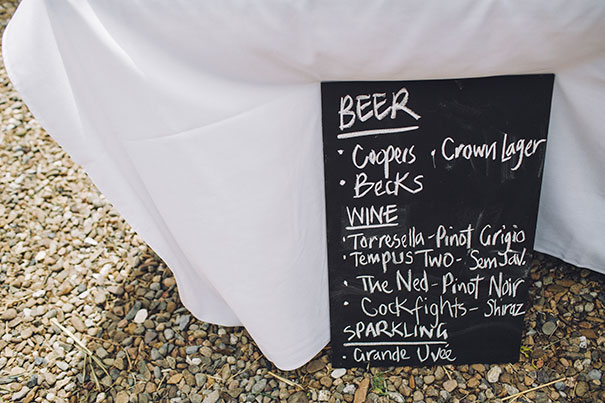 BEER
• Coopers • Crown Lager
• Becks
WINE
• Torresella - Pinot Grigio
• TEMPUS TWO - Sem Sav.
• The Ned - Pinot Noir
• Cockfights - Shiraz
SPARKLING
• Grande Uvée